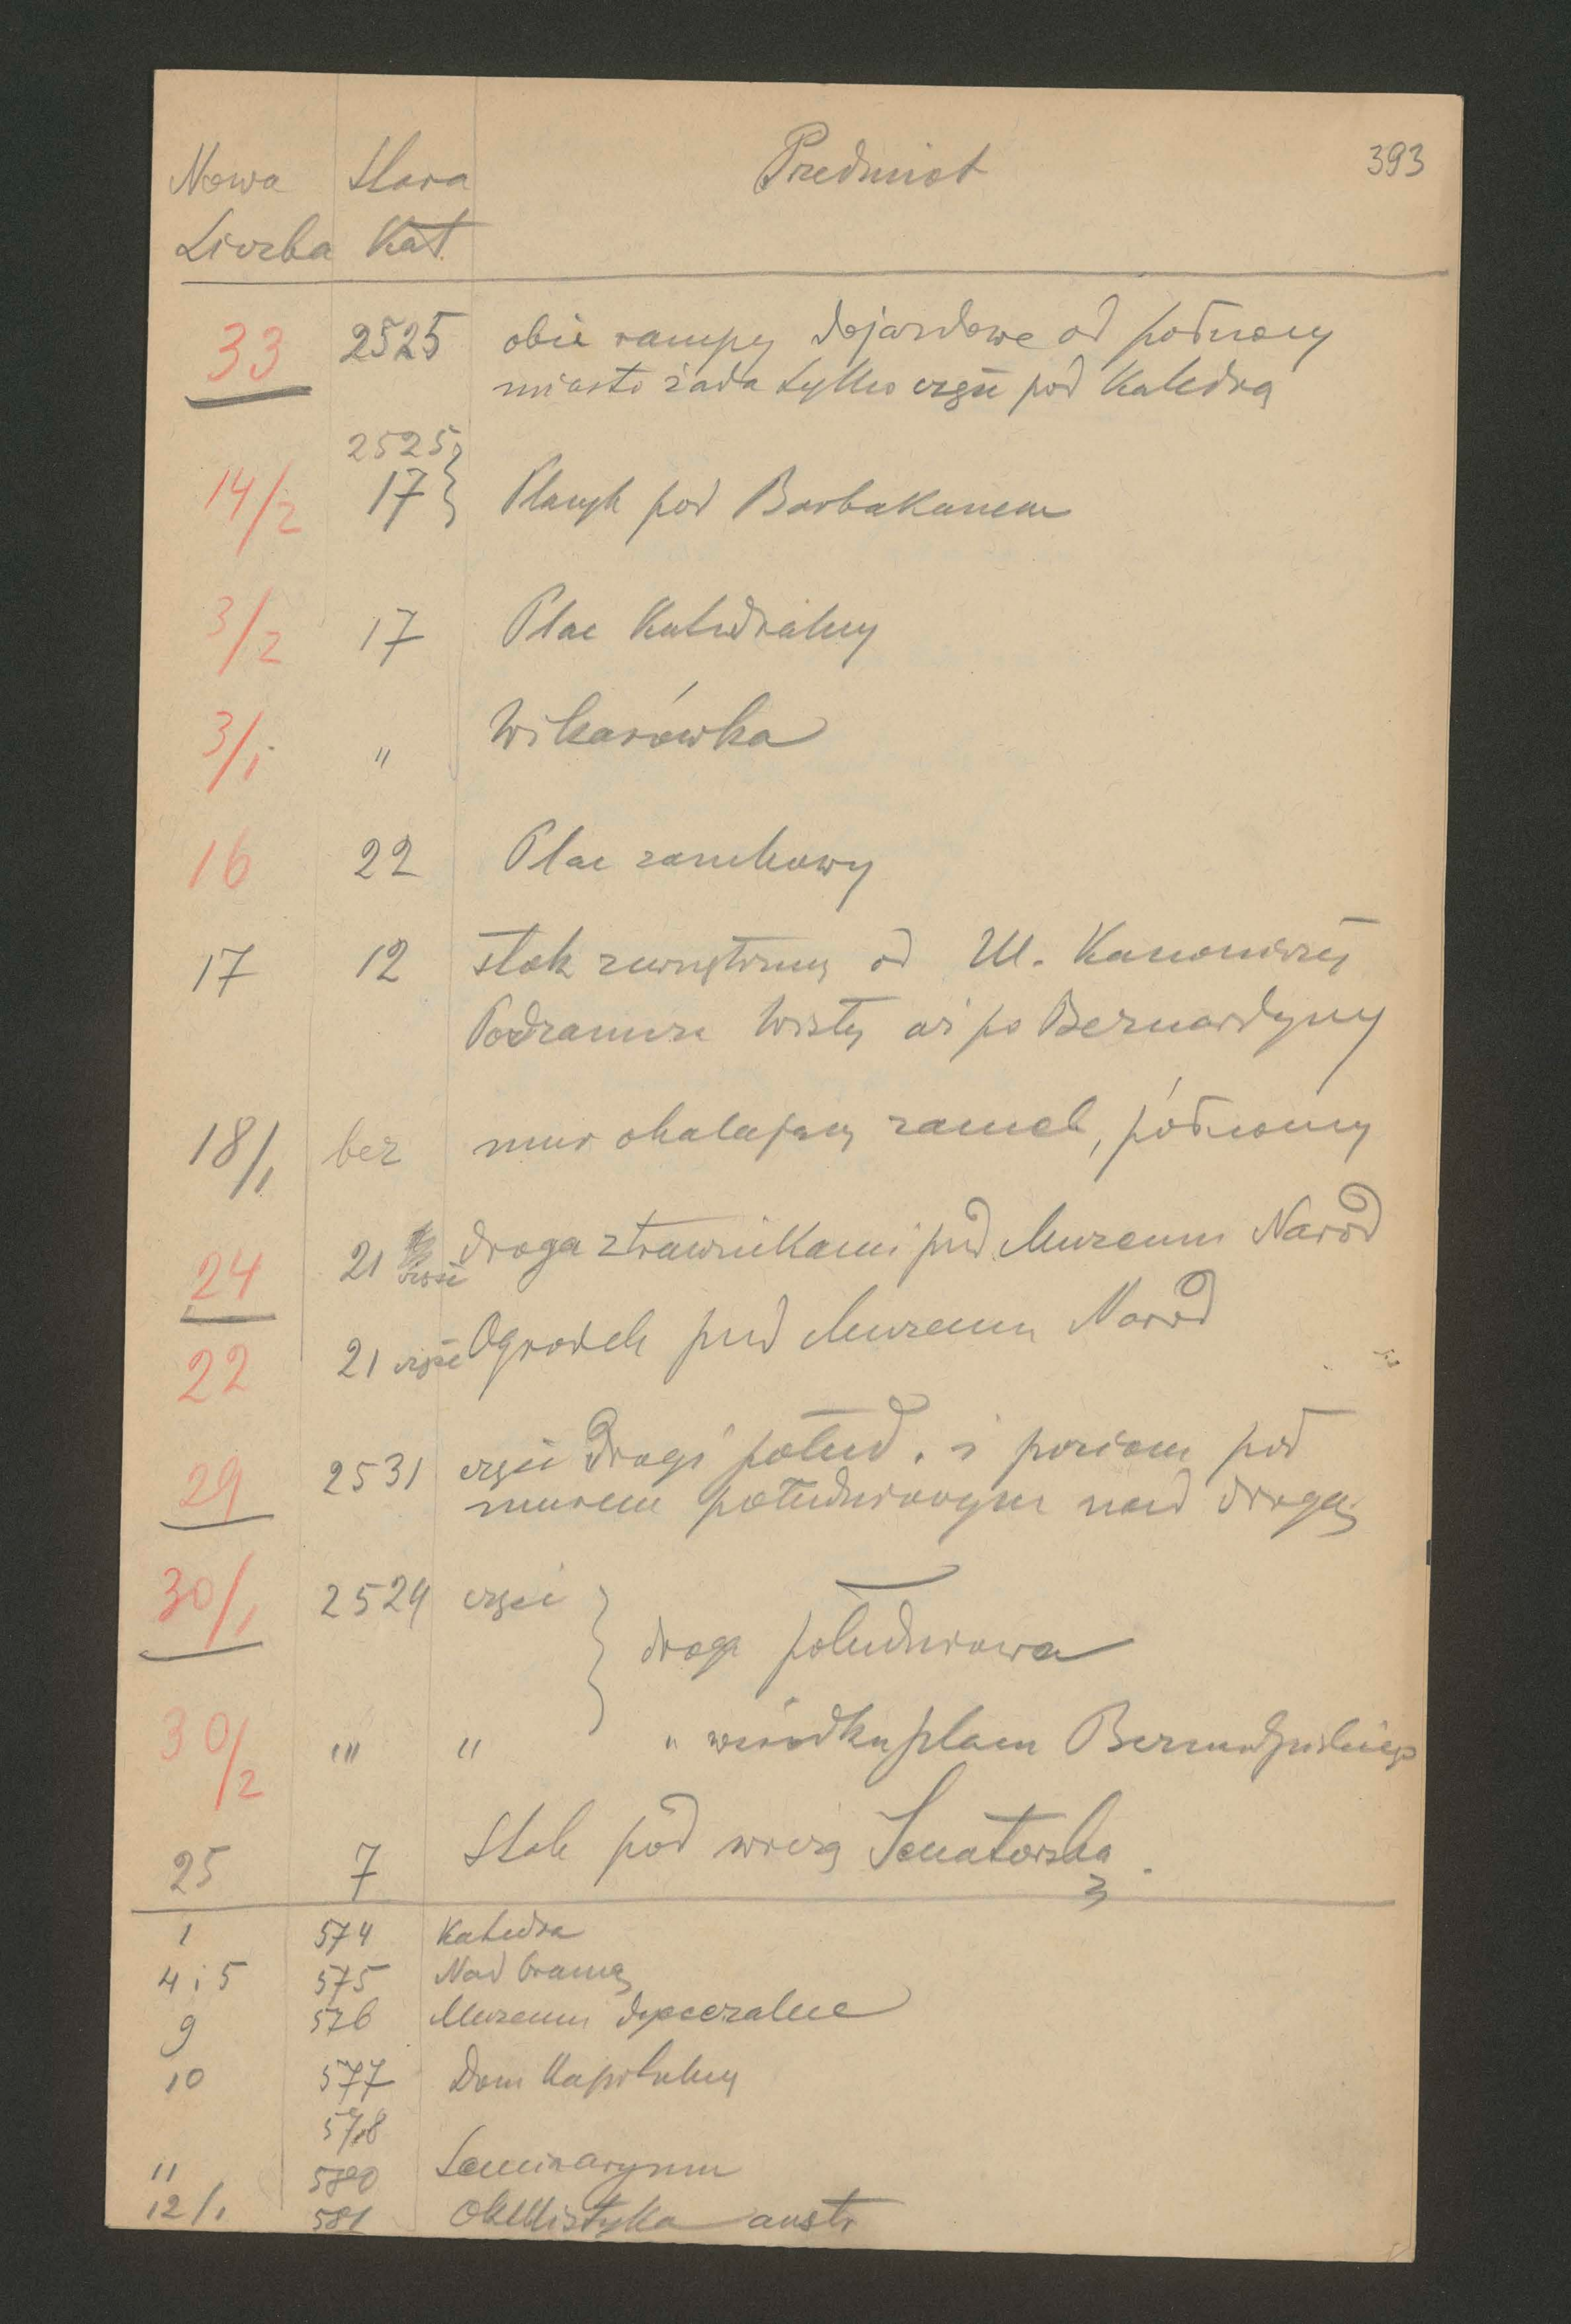 393
Nowa Stara Przedmiot
Liczba Kat.
33 2525 obie rampy dojazdowe od północy
miasto żąda tylko część pod Katedrą
2525
14/2 17 } Plac pod Barbakanem
3/2 17 Plac Katedralny
3/1 " Wikarówka
16 22 Plac zamkowy
17 12 stok zewnętrzny od Ul. Kanoniczej
Podzamcze Wisły aż po Bernardyny
18/1 bez mur okalający zamek, północny
24 21 część droga z trawnikami pod Muzeum Narod
22 21 część Ogródek pod Muzeum Narod
29 2531 część Drogi połud. i poziom pod
murem południowym nad drogą
30/1 2524 część } droga południowa
30/2 " " " w środku placu Bernardyńskiego
25 7 Stok pod wieżą Senatorską.
1 574 Katedra
4 i 5 575 Nad bramą
9 576 Muzeum dyecezalne
10 577 Dom Kapitulny
578
11 580 Seminaryum
12/1 581 austr